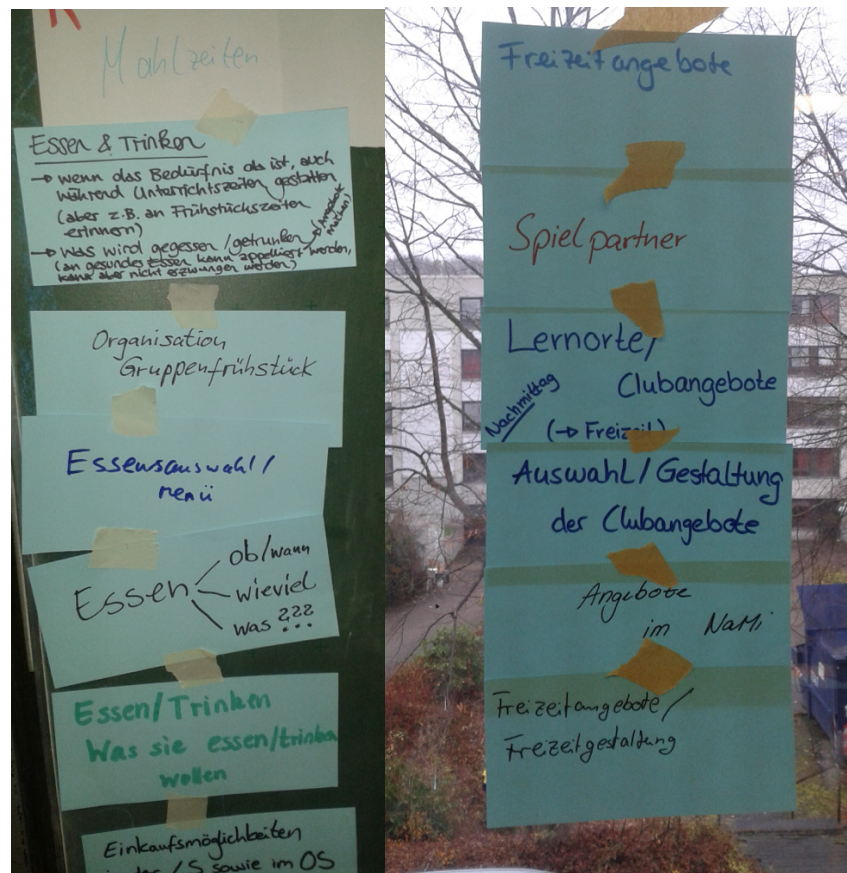 Mahlzeiten
Essen & Trinken
→ wenn das Bedürfnis da ist, auch
während Unterrichtszeiten gestatten
(aber z.B. an Frühstückszeiten
erinnern)
→ Was wird gegessen/getrunken → Angebote machen)
(an gesundes Essen kann appelliert werden,
kann aber nicht erzwungen werden)
Organisation
Gruppenfrühstück
Essensauswahl/
menü
Essen
ob/wann
wieviel
was ???
Essen/Trinken
Was sie essen/trinken
wollen
Einkaufsmöglichkeiten
sowie im OS
Freizeitangebote
Spielpartner
Lernorte/
Clubangebote
Nachmittag
(→ Freizeit)
Auswahl/Gestaltung
der Clubangebote
Angebote
im NaMi
Freizeitangebote/
Freizeitgestaltung